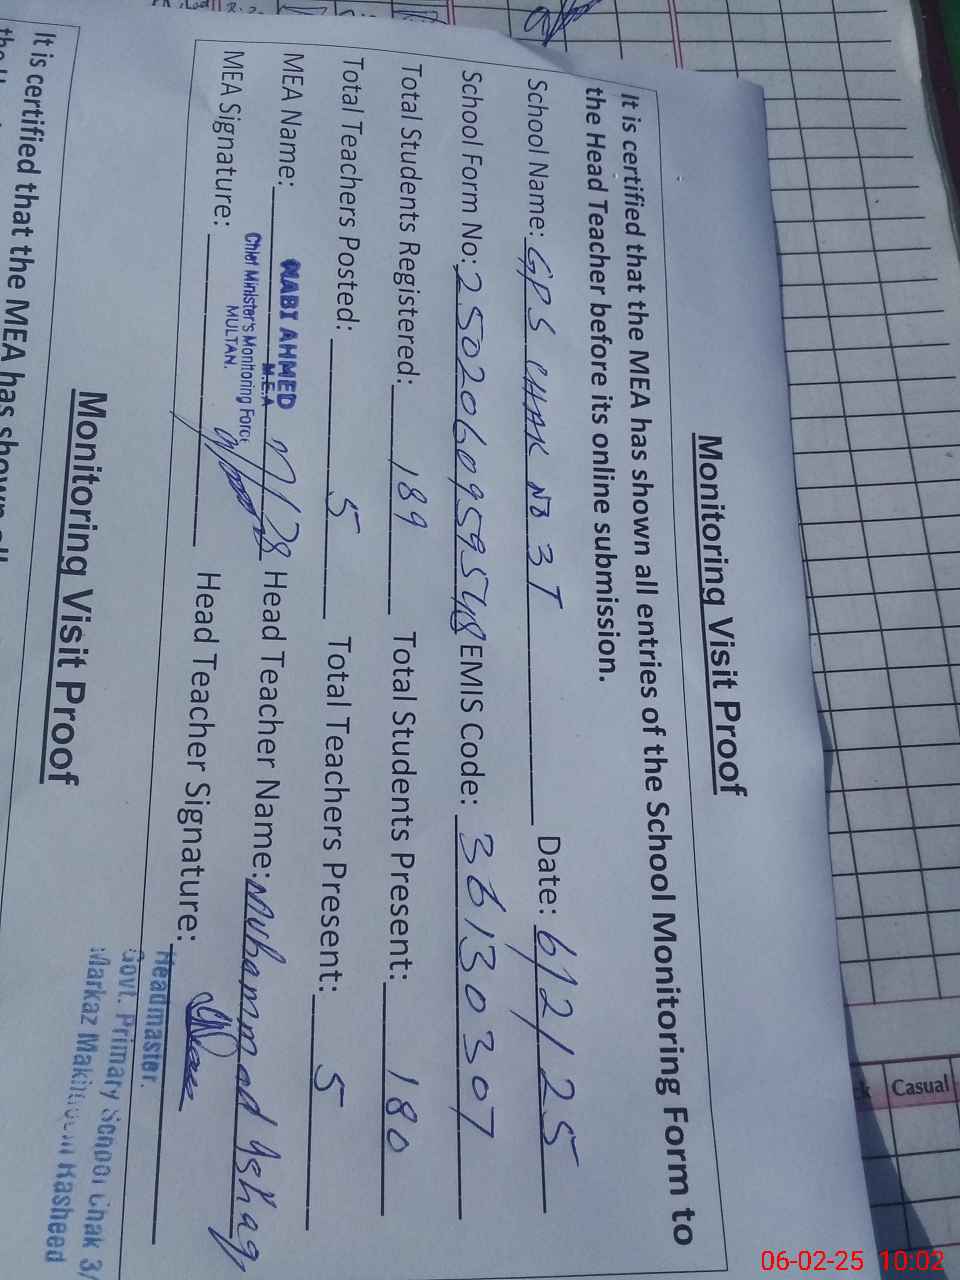 Monitoring Visit Proof
It is certified that the MEA has shown all entries of the School Monitoring Form to
the Head Teacher before its online submission.
School Name: GPS CHAK No 3T Date: 6/2/25
School Form No: 25020609595 EMIS Code: 36130307
Total Students Registered: 189 Total Students Present: 180
Total Teachers Posted: 5 Total Teachers Present: 5
MEA Name: NABI AHMED Head Teacher Name: Muhammad Ashaq
M.E.A
Chief Minister's Monitoring Force
MULTAN.
MEA Signature: Head Teacher Signature:
Headmaster.
Govt. Primary School Chak 3/
Markaz Rasheed
Monitoring Visit Proof
It is certified that the MEA has shown all
the
Casual
06-02-25 10:02